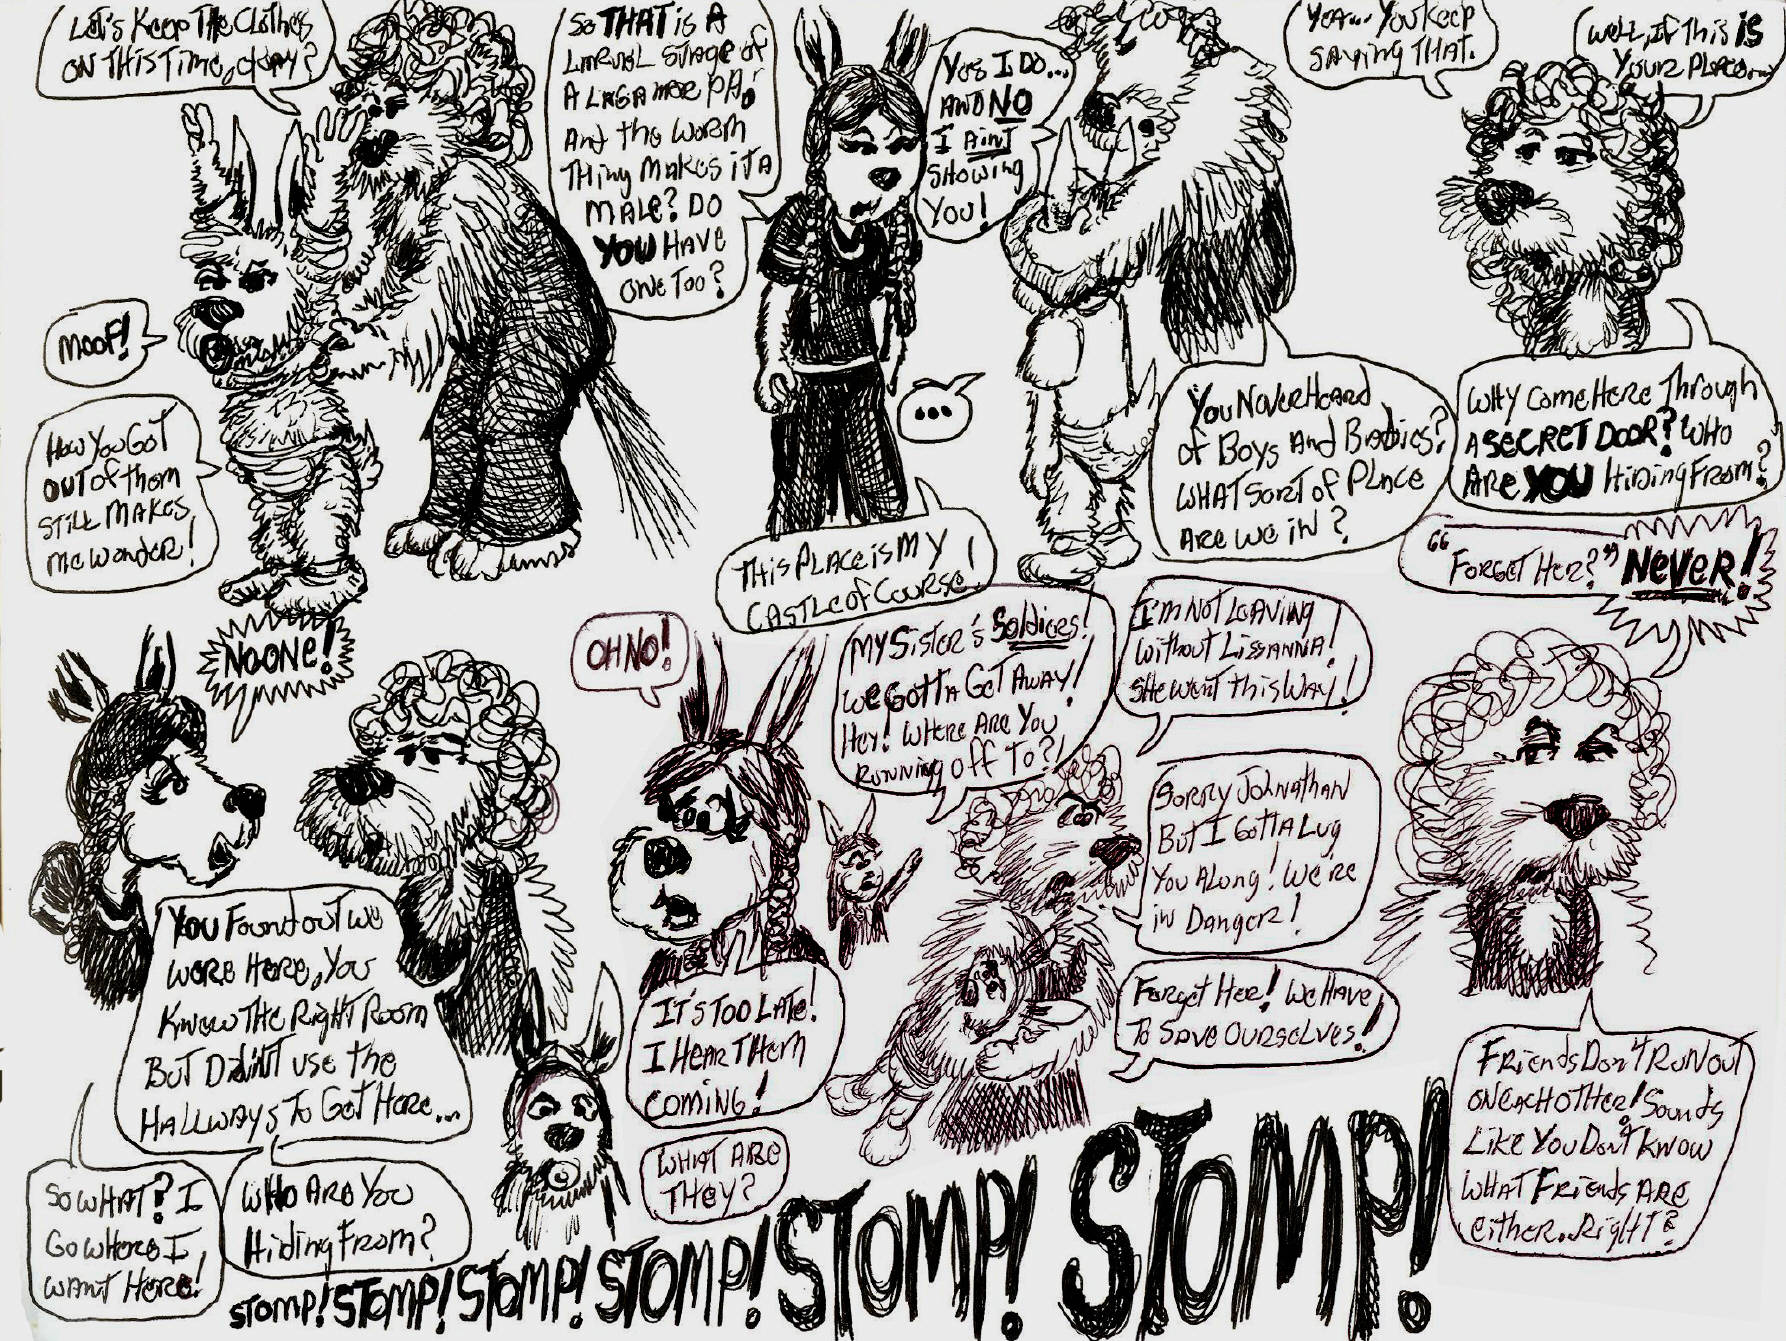 Let's Keep The Clothes
on This Time, okay?
Moof!
How You Got
out of them
still makes
me wonder!
So THAT is A
Larval stage of
A Lagamorpha!
And the worm
Thing makes it a
male? Do
YOU Have
one Too?
Yes I Do...
AND NO
I Ain't
showing
You!
...
This Place is My
Castle of Course!
You Never Heard
of Boys And Babies?
What sort of Place
are we in?
Yea... You keep
saying That.
Well, If this is
Your Place...
Why Come Here Through
A SECRET DOOR? Who
Are YOU Hiding From?
No one!
You Found out we
were Here, You
Knew The Right Room
But Didn't use the
Hallways To Get Here...
So what? I
Go where I
want Here!
Who Are You
Hiding From?
Oh No!
My Sister's Soldiers!
We Gotta Get Away!
Hey! Where Are You
Running off To?!
I'm Not Leaving
Without Lissanna!
She went this way!
Sorry Johnathan
But I Gotta Lug
You Along! We're
in Danger!
It's Too Late!
I Hear Them
Coming!
What Are
They?
Forget Her! We Have
To Save Ourselves!
"Forget Her?" NEVER!
Friends Don't Run out
on each other! Sounds
Like You Don't Know
What Friends Are
either.. Right?
STOMP! STOMP! STOMP! STOMP! STOMP! STOMP!